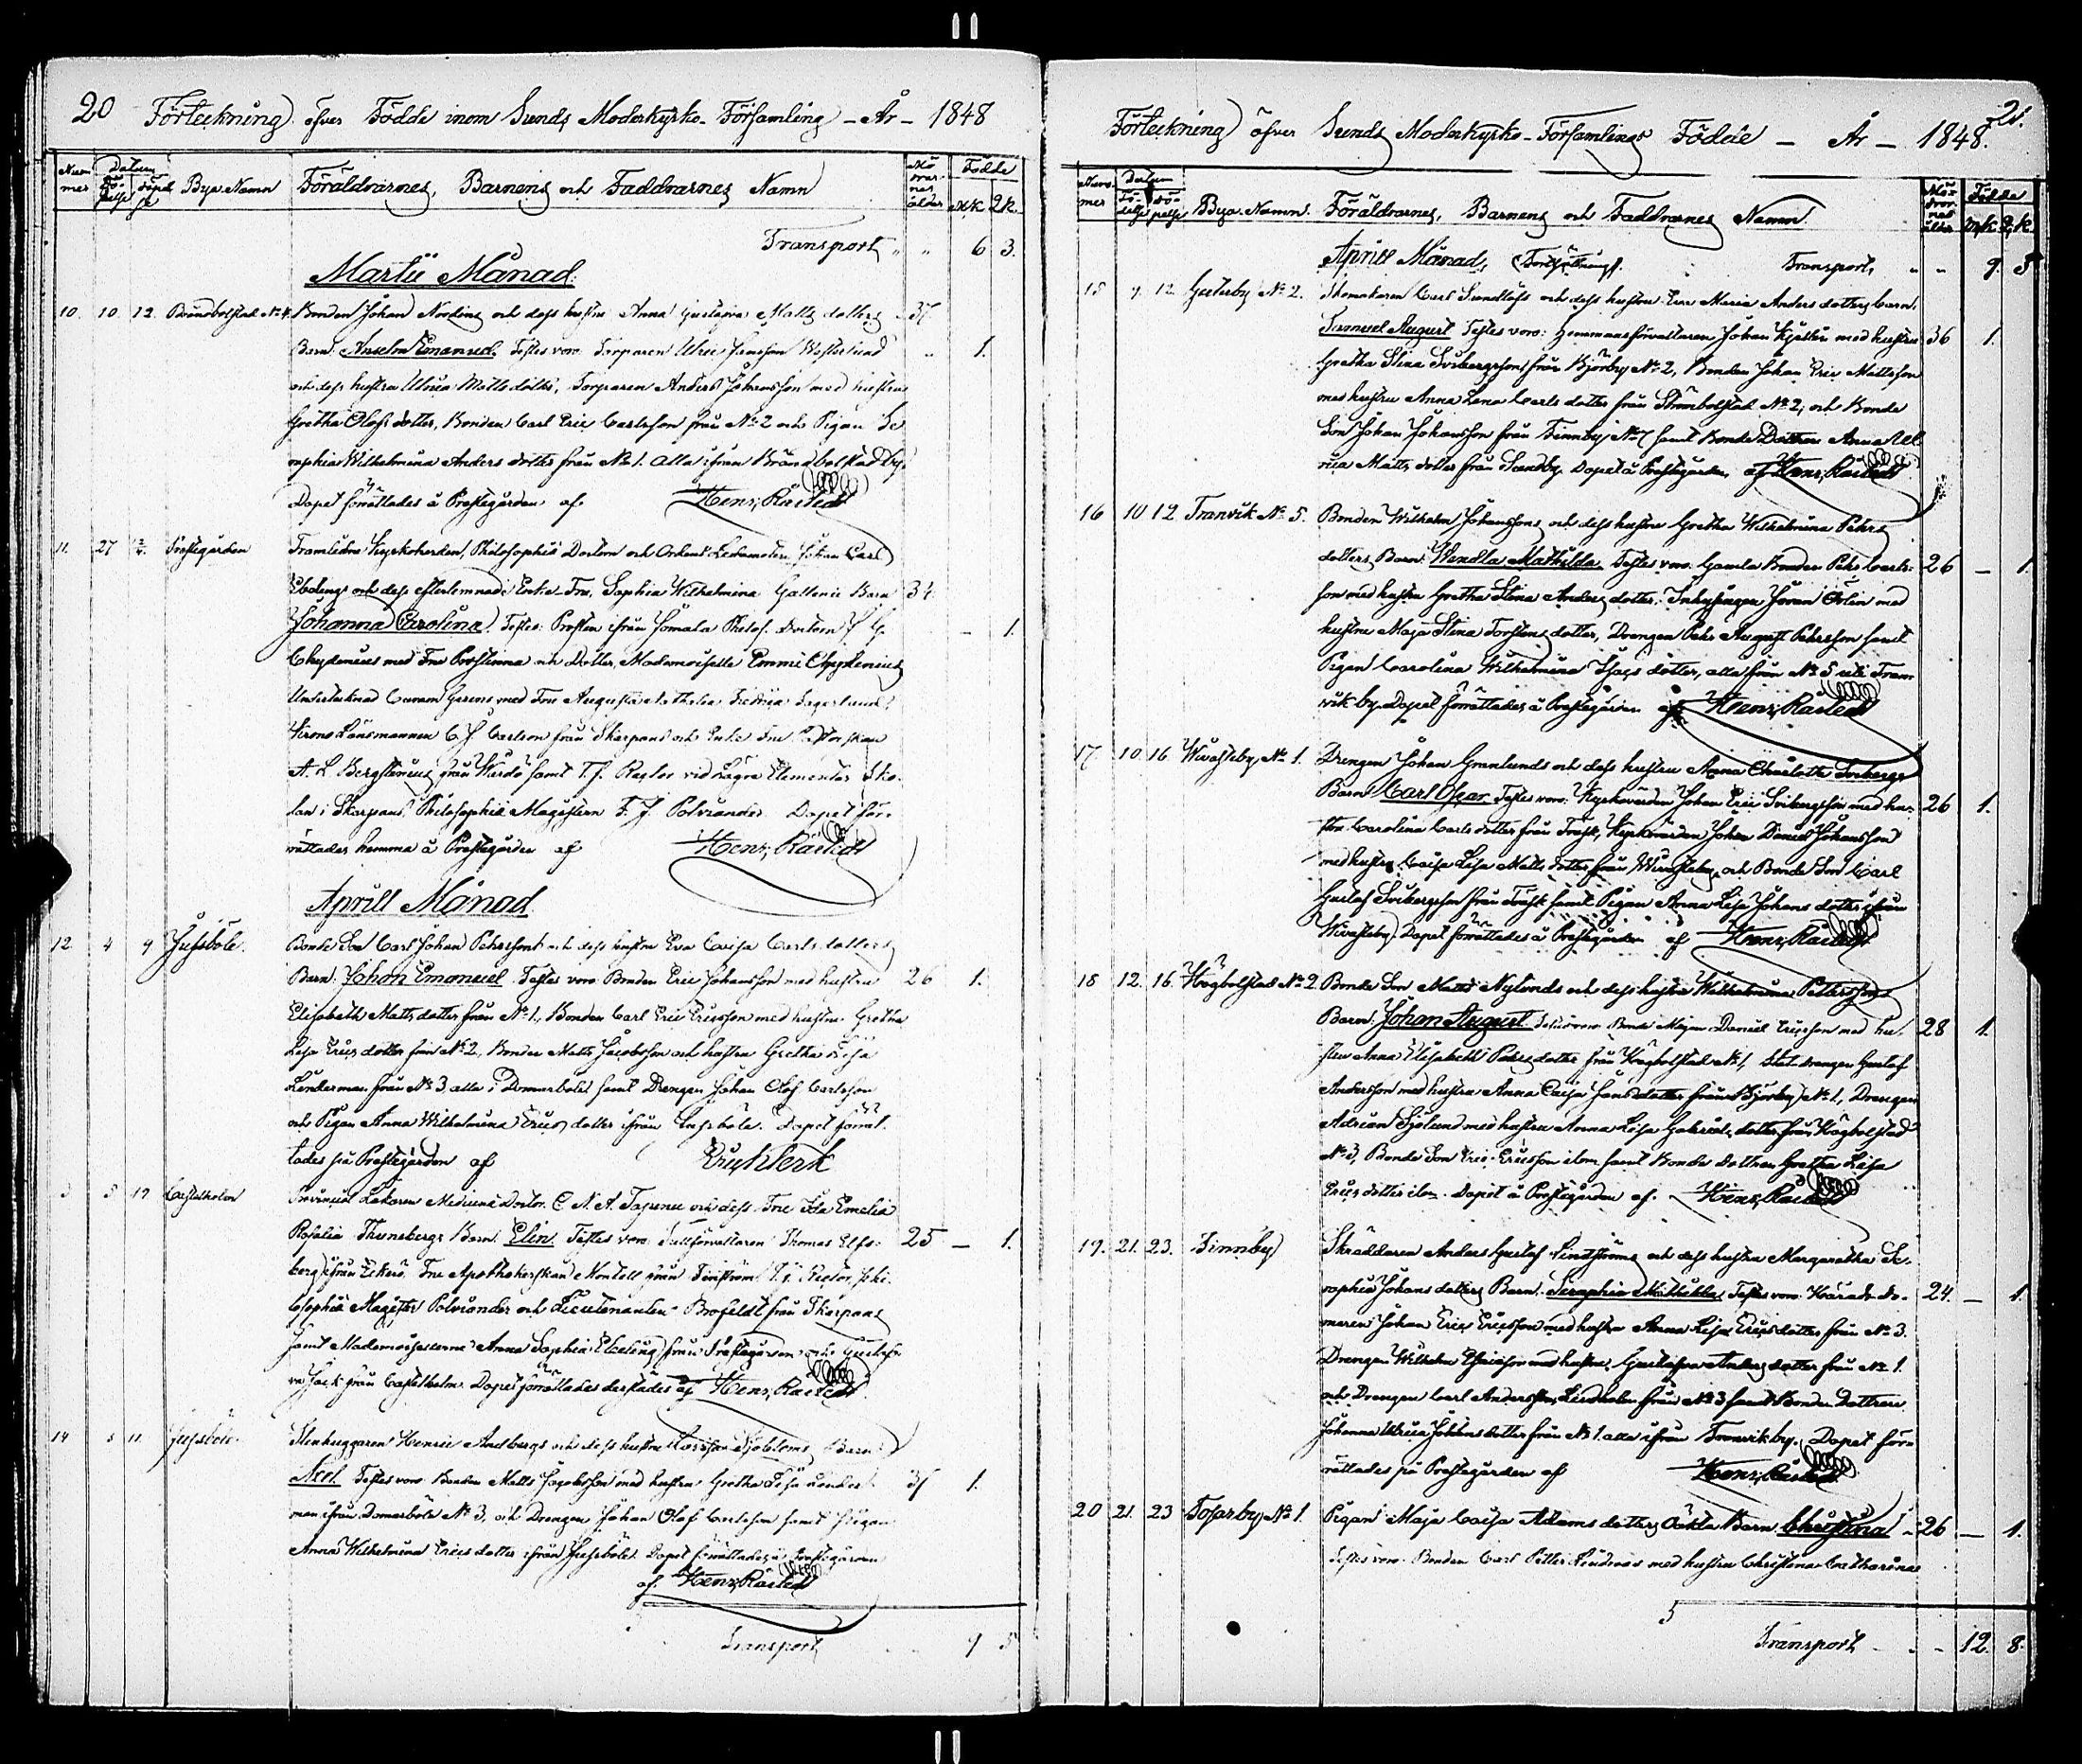 20 Förteckning öfver Födde inom Sunds Moderkyrko-Församling - År - 1848
Num mer Datum Bya Namn Föräldrarnes, Barnens och Faddrarnes Namn Mö drar nas ålder Födde Mk Qk.
Transport " " 6 3.
Martii Månad.
10. 10 12. Brändbolstad No 4. Bonden Johan Nordins och dess hustru Anna Gustafva Matts dotters 37
Barn Anselm Emanuel. Testes voro Torparen Ulric Jansson Westerlund " 1.
och dess hustru Ulrica Matts dotter, Torparen Anders Johansson med hustru
Gretha Olofs dotter, Bonden Carl Eric Carlsson från No 2 och Pigan Se
raphia Wilhelmina Anders dotter från No 1. alla ifrån Brändbolstad by.
Dopet förrättades å Prestegården af Henr. Råstedt
11. 27 2/4. Prestegården Framlidne Kyrkoherden, Philosophiæ Doctorn och Ordens Ledamoten Johan Carl
Ebelings och dess efterlemnade Enke Fru Sophia Wilhelmina Gallenii Barn 34.
Johanna Carolina. Testes: Prosten ifrån Jomala Philos. Doctorn J G. — 1.
Chydenius med Fru Prostinna och Dotter, Mademoiselle Emmi Chydenius
Undertecknad Curam Gerens med Fru Augusta Nathalia Fredrica Lagerlund
Krono Länsmannen C. J. Carlson från Skarpans och Enke Fru Pastorskan
A. L. Bergstenius från Wårdö samt T.f. Rector vid Lägre Elementar Sko-
lan i Skarpans Philosophiæ Magistern F. J. Polviander. Dopet för-
rättades hemma å Prestegården af Henr. Råstedt
Aprill Månad.
12 4 9 Jussböle. Bonde Son Carl Johan Pehrssons och dess hustru Eva Caisa Carls dotters
Barn: Johan Emanuel Testes voro Bonden Eric Johansson med hustru 26 1.
Elisabeth Matts dotter från No 1., Bonden Carl Eric Ericsson med hustru Gretha
Lisa Erics dotter från No 2, Bonden Matts Jacobsson och hustru Gretha Lisa
Lenderman från No 3 alla i Domarböle samt Drengen Johan Olof Carlsson
och Pigan Anna Wilhelmina Erics dotter ifrån Jussböle. Dopet förrät-
tades på Prestegården af
3 5 19 Castelholm Provincial Läkaren Medicinæ Doctor C. N. A. Topenii och dess Fru Ida Emelia
Rosalia Thunebergs Barn: Elin. Testes voro Tullförvaltaren Thomas Elfs- 25 — 1.
berg ifrån Eckerö. Fru Apothekerskan Nortell från Finström T.f. Rector Phi-
losophiæ Magister Polviander och Lieutenanten Brofeldt från Skarpans
samt Mademoisellerna Anna Sophia Ebeling från Prestegården och Gustaf-
va Jack från Castelholm. Dopet förrättades derstädes af Henr. Råstedt
14 5 11 Jussböle. Stenhuggaren Henric Anrbergs och dess hustru Sjöbloms Barn
Axel. Testes voro Bonden Matts Jacobsson med hustru Gretha Lisa Lender- 35 1.
man ifrån Domarböle No 3, och Drengen Johan Olof Carlsson samt Pigan
Anna Wilhelmina Erics dotter ifrån Jussböle. Dopet förrättades å Prestegården
af Henr. Råstedt
Transport 9 5
Förteckning öfver Sunds Moderkyrko-Församlings Födde — År — 1848. 21.
Num mer Datum Fö- delse Dö- pelse Bya Namn. Föräldrarnes, Barnens och Faddrarnes Namn. Mö drar nas ålder Födde Mk. Qk.
Aprill Månad, (Fortsättning). Transport, " " 9. 5
15 9. 12. Gesterby No 2. Skomakaren Carl Sundlöfs och dess hustru Eva Maria Anders dotters barn.
Samuel August Testes voro: Hemmansförvaltaren Johan Kjellin med hustru 36 1.
Gretha Stina Svibergsson från Björby No 2, Bonden Johan Eric Mattsson
med hustru Anna Lena Carls dotter från Strömbolstad No 2, och Bonde
Son Johan Johansson från Finnby No 7 samt Bonde Dottren Anna Ul
rica Matts dotter från Sundby. Dopet å Prestegården af Henr. Råstedt
16 10 12 Tranvik No 5. Bonden Wilhelm Johanssons och dess hustru Gretha Wilhelmina Pehrs
dotters Barn: Wendla Mathilda. Testes voro. Gamla Bonden Pehr Carls- 26 — 1.
son med hustru Gretha Stina Anders dotter, Inhysingen Jöran Örlin med
hustru Maja Stina Torstens dotter, Drengen Pehr August Pehrsson samt
Pigan Carolina Wilhelmina Isacs dotter, alla från No 5 uti Tran-
vik by. Dopet förrättades å Prestegården af Henr. Råstedt
17. 10 16 Wivasteby No 1. Drengen Johan Granlunds och dess hustru Anna Charlotta Svibergs
Barn Carl Oscar. Testes voro: Kyrkovärden Johan Eric Svibergsson med hu- 26 1.
stru Carolina Carls dotter från Träsk, Kyrkovärden Johan Daniel Johansson
med hustru Caisa Lisa Matts dotter från Wivasteby, och Bonde Son Carl
Gustaf Svibergsson från Träsk samt Pigan Anna Lisa Johans dotter ifrån
Wivasteby. Dopet förrättades å Prestegården af Henr. Råstedt
18 12. 16. Högbolstad No 2. Bonde Son Matts Nylunds och dess hustru Wilhelmina Pettersons
Barn: Johan August. Testes voro Bonde Mågen Daniel Ericsson med hu- 28 1.
stru Anna Elisabeth Pehrs dotter från Högbolstad No 1, Statdrengen Gustaf
Andersson med hustru Anna Caisa Jans dotter från Björby No 1, Drengen
Adrian Sjölund med hustru Anna Lisa Gabriels dotter från Högbolstad
No 3, Bonde Son Eric Ericsson ibm samt Bonde Dottren Gretha Lisa
Erics dotter ibm. Dopet å Prestegården af. Henr. Råstedt
19. 21. 23. Finnby Skräddaren Anders Gustaf Lindströms och dess hustru Margaretha Se-
raphia Johans dotters Barn. Seraphia Mathilda. Testes voro. Härads do- 24. — 1.
maren Johan Eric Ericsson med hustru Anna Lisa Erics dotter från No 3.
Drengen Wilhelm med hustru Gustafva Anders dotter från No 1.
och Drengen Carl Andersson Lindholm från No 3 samt Bonden Dottren
Johanna Ulrica Johans dotter från No 1. alla ifrån Tranvik by. Dopet för-
rättades på Prestegården af Henr. Råstedt
20 21. 23 Tosarby No 1. Pigan Maja Caisa Adams dotters Oäkta Barn Christina " 26 — 1.
Testes voro. Bonden Carl Petter Lindroos med hustru Christina Catharina
Transport - - 12. 8.